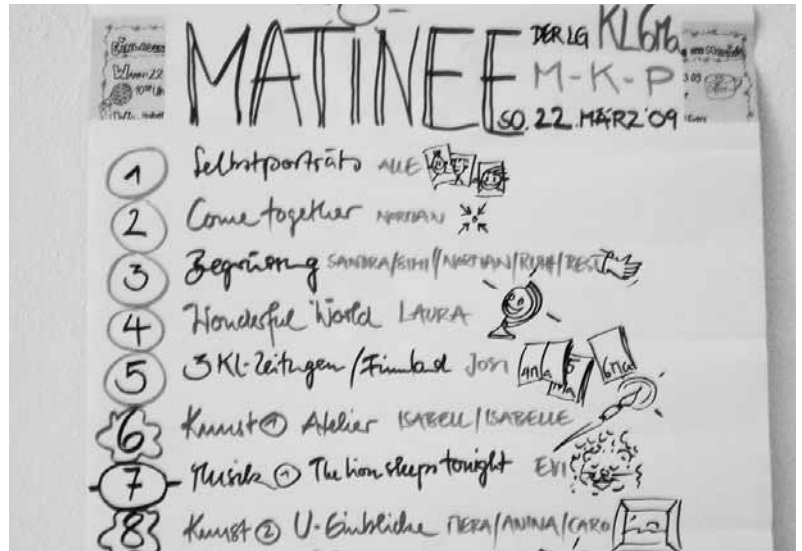 MATINÉE DER LG KL6Ma
M-K-P
SO. 22. MÄRZ '09
1 Selbstporträts ALLE
2 Come together NARDIAN
3 Begrüssung SANDRA/SIMI/NARDIAN/RUHI/REST
4 Wonderful World LAURA
5 3 Kl-Zeitungen / JOSI
6 Kunst 1 Atelier ISABELL/ISABELLE
7 Musik 1 The lion sleeps tonight EVI
8 Kunst 2 U-Einblicke MERA/ANINA/CARO